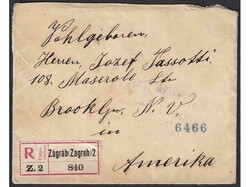 Wohlgeboren,
Herren, Jozef Tassotti
108. Maserobe Str
Brooklyn, N. Y.
in
6466
Amerika
R
Z. 2
Zágráb Zagreb 2
840